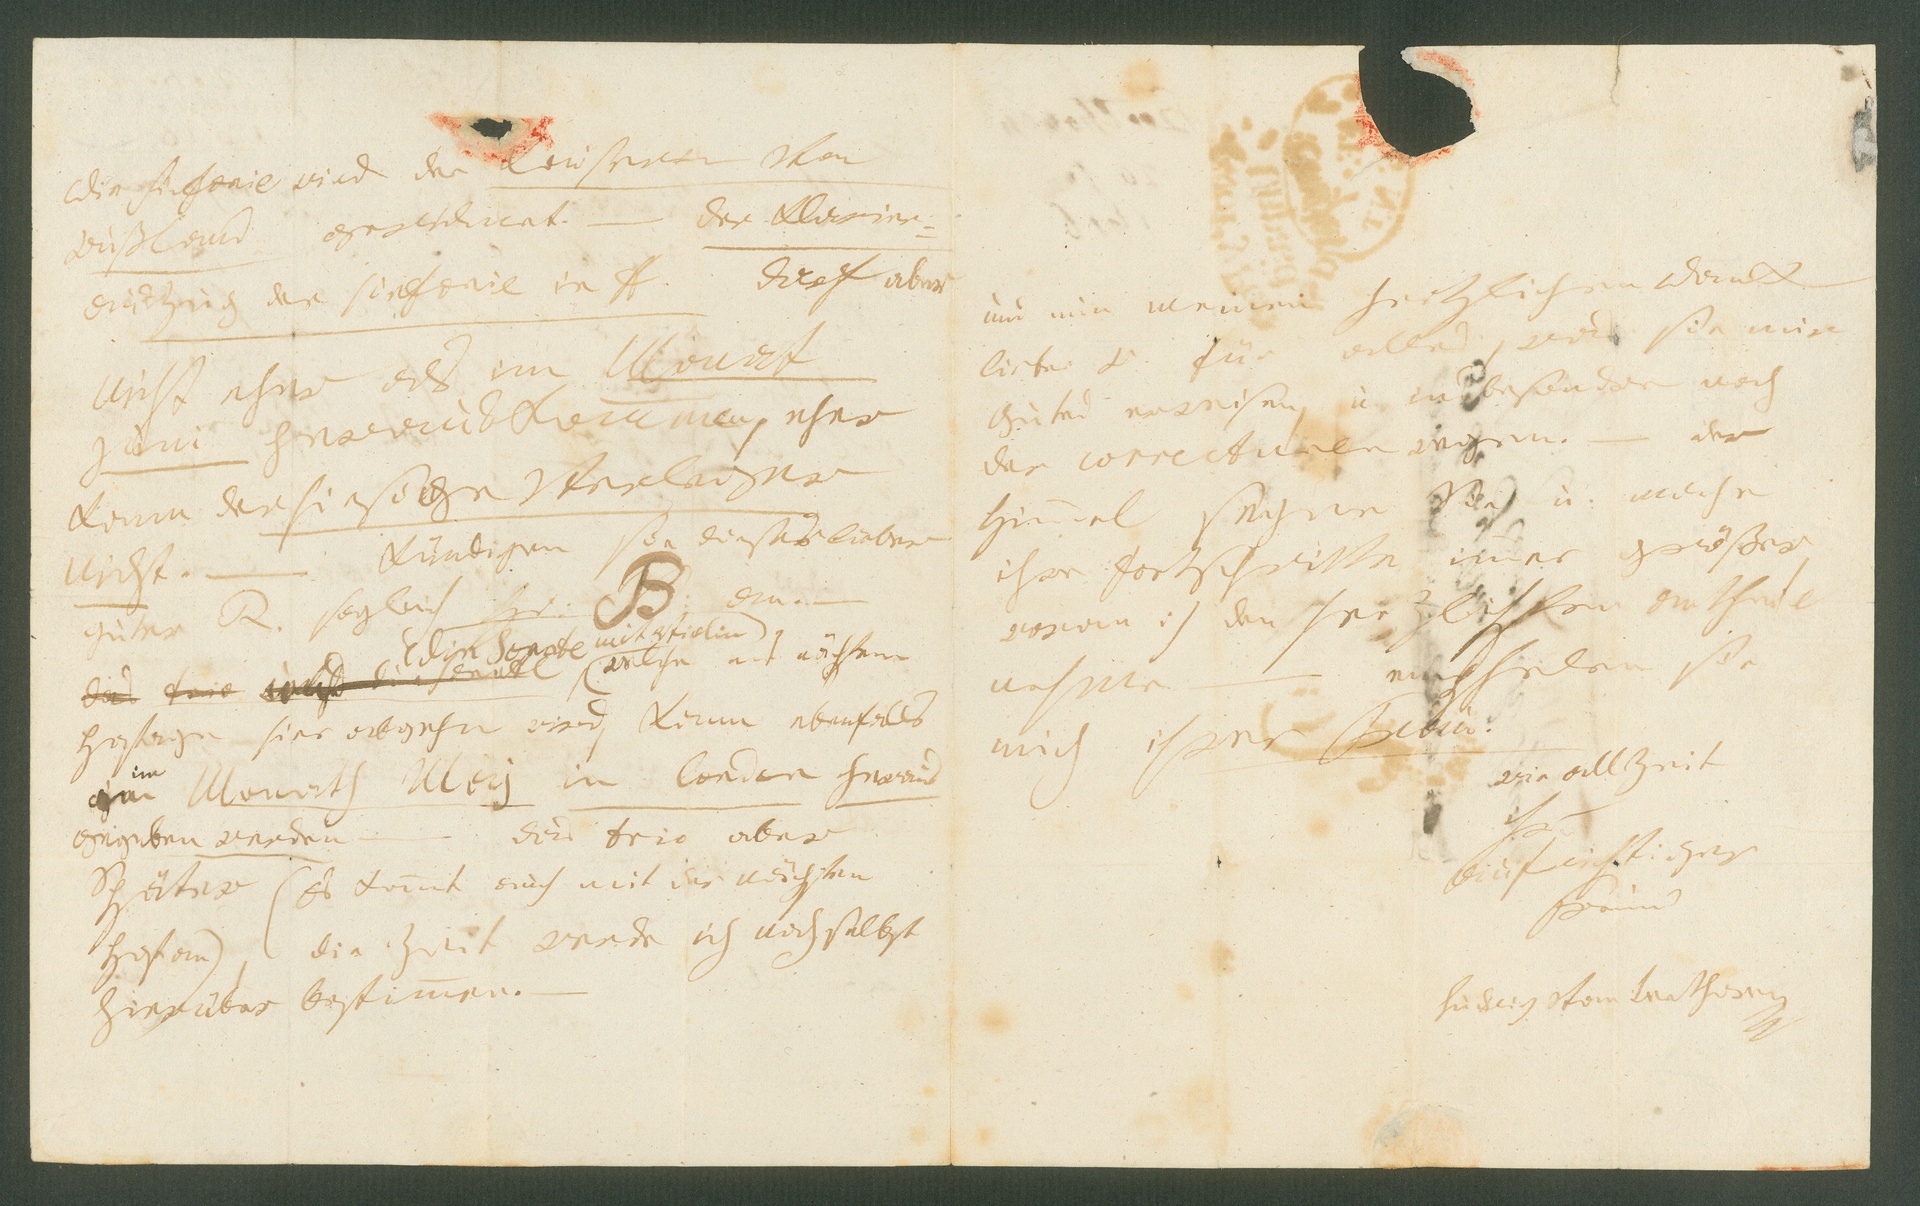 Die sinfonie wird der Kaiserin von
Rußland gewidmet. — der Klawier=
auszug der sinfonie in A. darf aber
nicht eher als im Monath
juni herauskommen, eher
kann der hiesige Verleger
nicht. — Kündigen sie dieses lieber
guter R. sogleich Hr. B. an. —
(die Sonate mit violin)
das trio und die sonate (welche mit nächstem
Posttage hier abgehn wird, kann ebenfalls
im Monath May in london heraus
gegeben werden — das trio aber
später (es komt auch mit der nächsten
Post an), die Zeit werde ich noch selbst
hierüber bestimmen. —
und nun meinen herzlichen Dank
lieber R. für alles, was sie mir
Gutes erweisen, u. insbesondere noch
der correcturen wegen. — der
Himmel segne Sie u. mache
ihre fortschritte imer größer
woran ich den herzlichsten antheil
nehme — empfehlen sie
mich ihrer Frau.
wie allzeit
Ihr
aufrichtiger
Freund
ludwig van beethoven